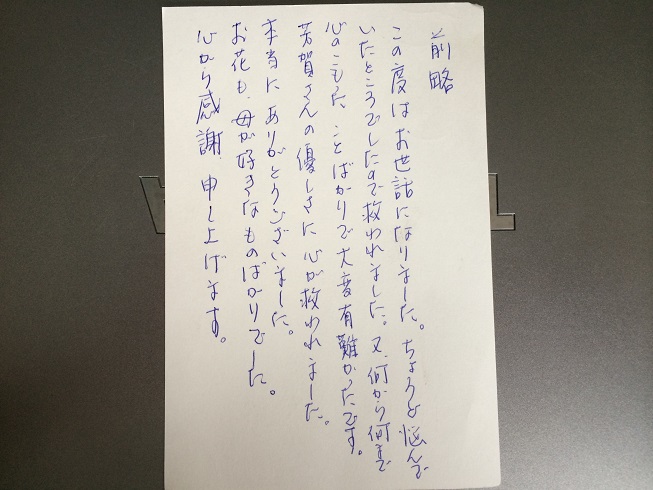 前略
この度はお世話になりました。ちょうど悩んで
いたところでしたので救われました。又、何から何まで
心のこもったことばかりで大変有難かったです。
芳賀さんの優しさに心が救われました。
本当にありがとうございました。
お花も、母が好きなものばかりでした。
心から感謝申し上げます。